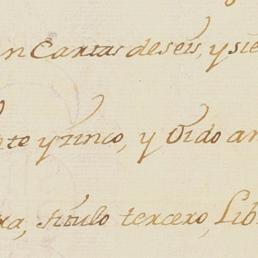 en Cartas de seis, y sie
nte y zinco, y Oido an
ra, título tercero, Lib